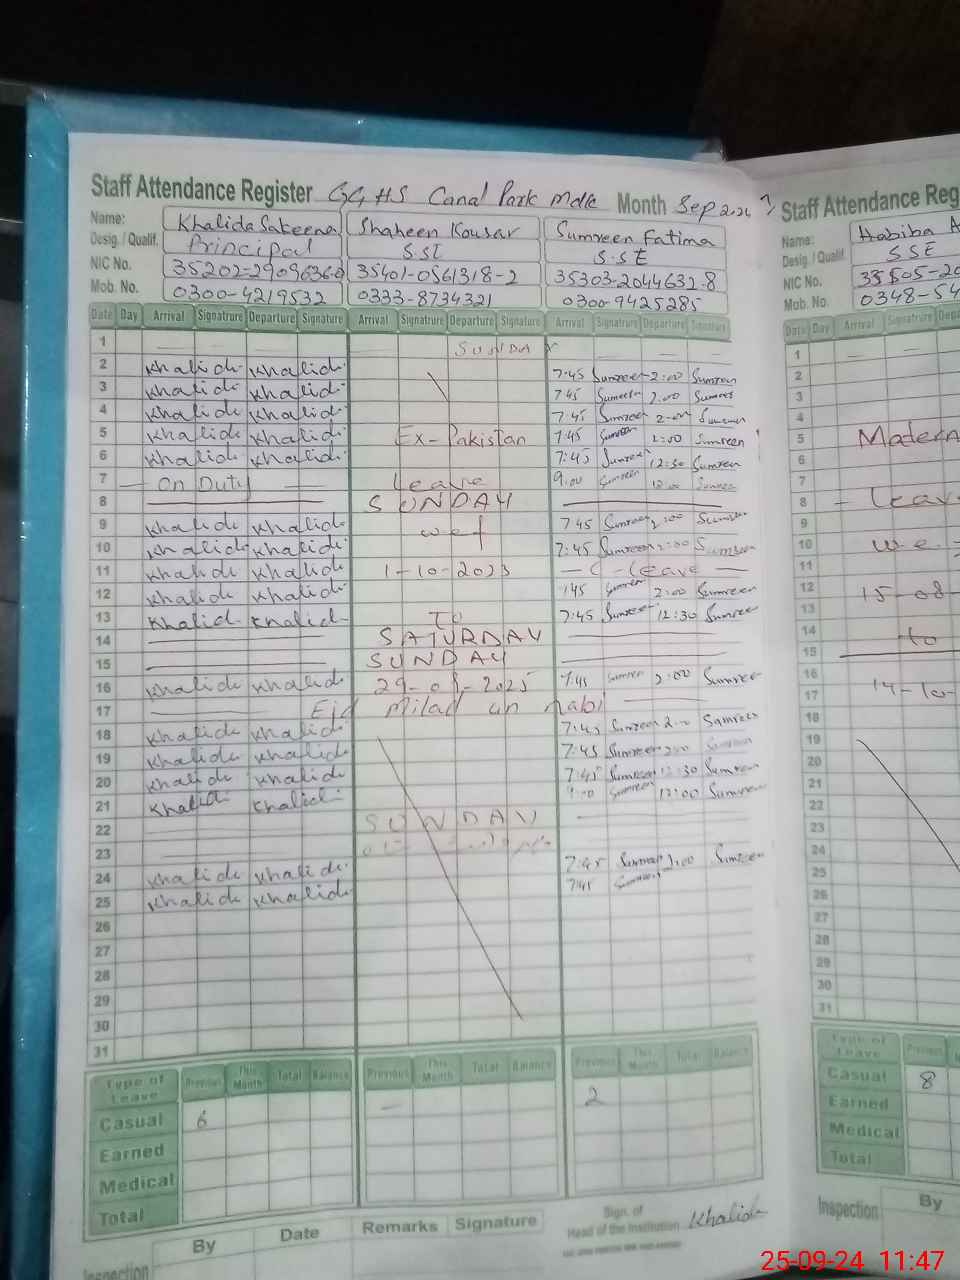 Staff Attendance Register GGHS Canal Park mdk Month Sep
Name: Khalida Sakeena Shaheen Kousar Sumreen Fatima
Desig. / Qualif. Principal SST S.S.E
NIC No. 35202-2909636-0 35401-0561318-2 35303-2044632-8
Mob. No. 0300-4219532 0333-8734321 0300-9425285
Date Day Arrival Signatrure Departure Signature Arrival Signatrure Departure Signature Arrival Signatrure Departure Signature
1 SUNDAY
2 Khalida Khalida 7:45 Sumreen 2:00 Sumreen
3 Khalida Khalida 7:45 Sumreen 2:00 Sumreen
4 Khalida Khalida 7:45 Sumreen 2:00 Sumreen
5 Khalida Khalida Ex-Pakistan 7:45 Sumreen 2:00 Sumreen
6 Khalida Khalida 7:45 Sumreen 12:30 Sumreen
7 On Duty Leave 9:00 Sumreen 12:00 Sumreen
8 SUNDAY
9 Khalida Khalida w.e.f 7:45 Sumreen 2:00 Sumreen
10 Khalida Khalida 7:45 Sumreen 2:00 Sumreen
11 Khalida Khalida 1-10-2023 C-Leave
12 Khalida Khalida 7:45 Sumreen 2:00 Sumreen
13 Khalida Khalida To 7:45 Sumreen 12:30 Sumreen
14 SATURDAY
15 SUNDAY
16 Khalida Khalida 7:45 Sumreen 2:00 Sumreen
17 Eid Milad un nabi
18 Khalida Khalida 7:45 Sumreen 2:00 Sumreen
19 Khalida Khalida 7:45 Sumreen 2:00 Sumreen
20 Khalida Khalida 7:45 Sumreen 12:30 Sumreen
21 Khalida Khalida Sumreen 12:00 Sumreen
22 SUNDAY
23
24 Khalida Khalida 7:45 Sumreen 2:00 Sumreen
25 Khalida Khalida 7:45 Sumreen
26
27
28
29
30
31
Type of Leave Previous This Month Total Balance Previous This Month Total Balance Previous This Month Total Balance
Casual 6 — 2
Earned
Medical
Total
Sign. of
Head of the Institution Khalida
By Date Remarks Signature
Inspection
Staff Attendance Reg
Name: Habiba A
Desig. / Qualif. SSE
NIC No. 35505-20
Mob. No. 0348-54
Date Day Arrival Signatrure Depa
1
2
3
4
5 Matern
6
7
8 Leave
9
10 w.e.
11
12 15-08
13
14 to
15
16
17 14-10-
18
19
20
21
22
23
24
25
26
27
28
29
30
31
Type of Leave Previous
Casual 8
Earned
Medical
Total
Inspection By
25-09-24 11:47